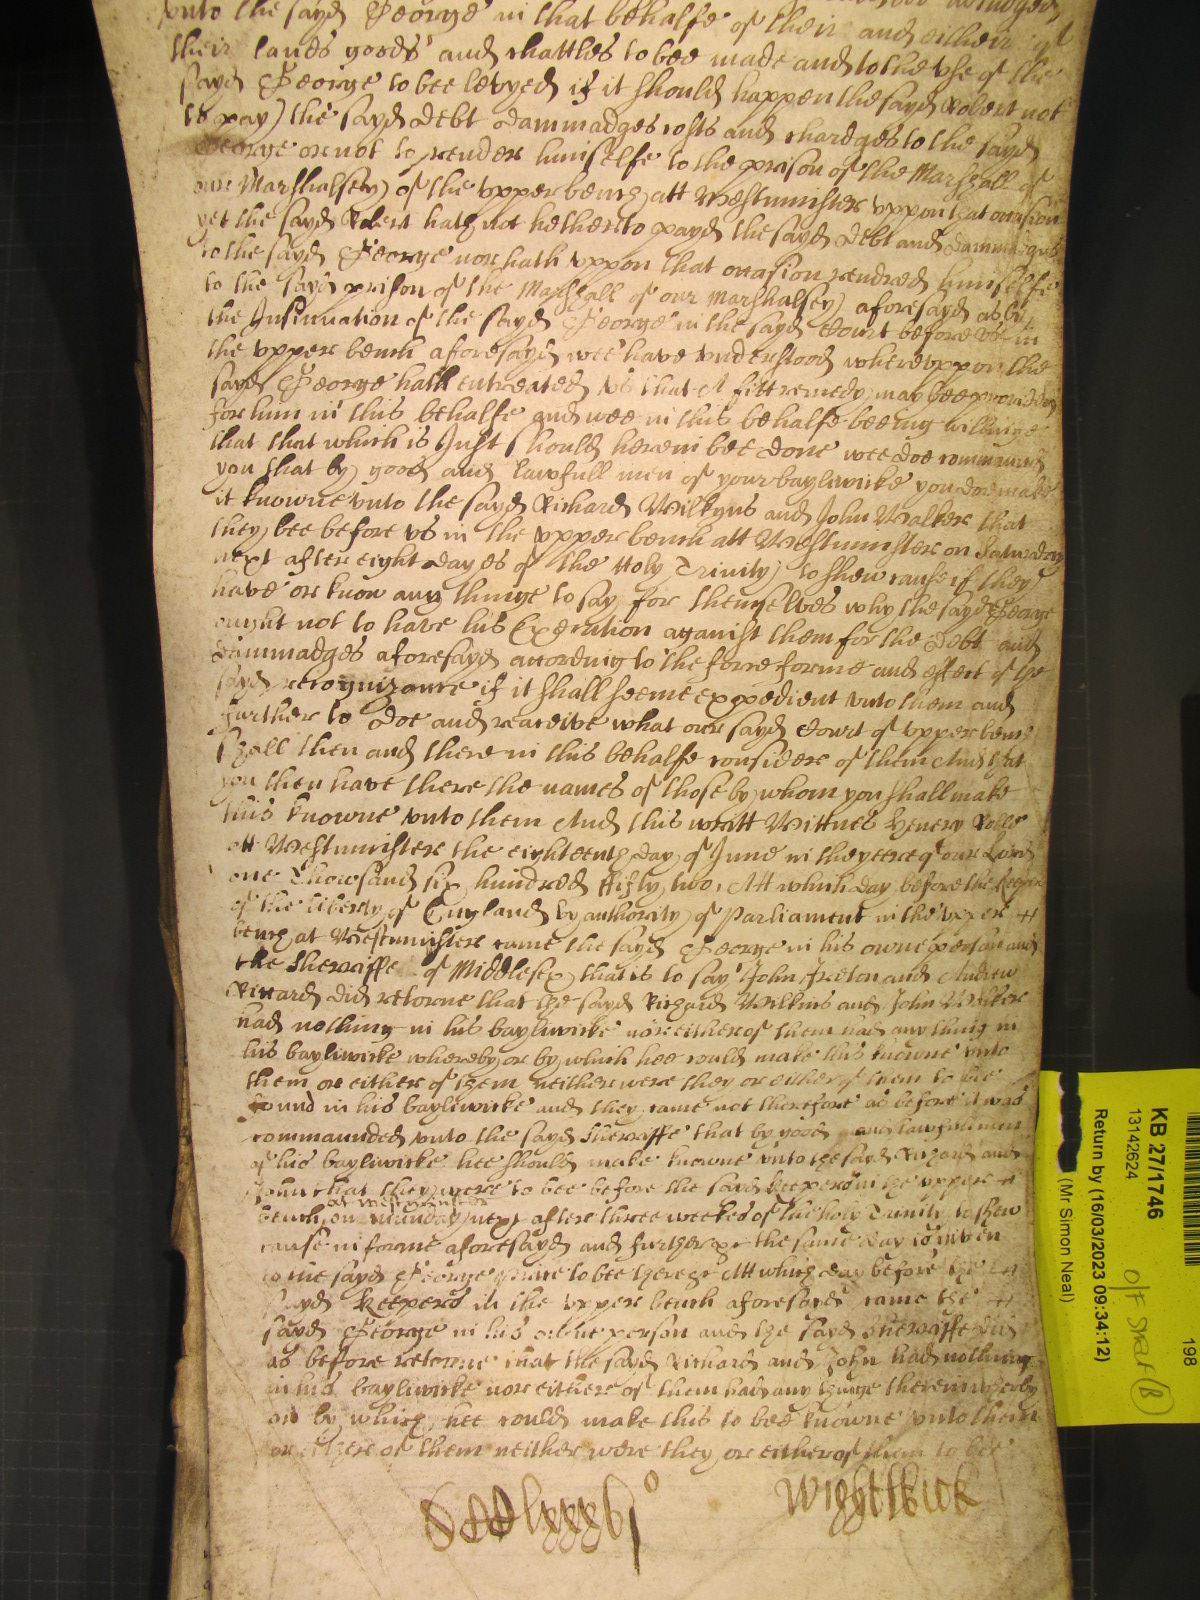 vnto the sayd George in that behalfe of their and either
their lands goods and chattles to bee made and to the vse of the
sayd George to bee levyed if it should happen the sayd Robert not
to pay the sayd debt dammadges costs and chardges to the sayd
George or not to render himselfe to the prison of the Marshall of
our Marshalsey of the vpper bench att Westminister vppon that occasion
yet the sayd Robert hath not hetherto payd the sayd debt and dammadges
to the sayd George nor hath vppon that occasion rendred himselfe
to the sayd prison of the Marshall of our Marshalsey aforesayd as by
the Insinuation of the sayd George in the sayd Court before vs in
the vpper bench aforesayd wee have vnderstood wherevppon the
sayd George hath entreated vs that A fitt remedy may bee provided
for him in this behalfe and wee in this behalfe beeing willinge
that that which is Just should herein bee done wee doe command
you that by good and lawfull men of your bayliwicke you doe make
it knowne vnto the sayd Richard Wilkyns and John Walker that
they bee before vs in the vpper bench att Westminister on Saturday
next after eight dayes of the Holy Trinity to shew cause if they
have or know any thinge to say for themselves why the sayd George
ought not to have his Execution against them for the debt and
dammadges aforesayd according to the force forme and effect of the
sayd recognizance if it shall seeme expedient vnto them and
further to doe and receive what our sayd Court of vpper bench
shall then and there in this behalfe consider of them And that
you then have there the names of those by whom you shall make
this knowne vnto them And this writt Wittnes Henery Rolle
att Westminister the eighteenth day of June in the yeere of our Lord
one Thowsand six hundred fifty two, Att which day before the Keepers
of the liberty of England by authority of Parliament in the vpper
bench at Westminister came the sayd George in his owne person and
the Sherriffe of Middlesex that is to say John Ireton and Andrew
Riccard did retorne that the sayd Richard Wilkins and John Walker
had nothing in his bayliwicke nor either of them had any thing in
his bayliwicke whereby or by which hee could make this knowne vnto
them or either of them neither were they or either of them to bee
found in his bayliwicke and they came not therefore as before it was
commaunded vnto the sayd Sherriffe that by good and lawfull men
of his bayliwicke hee should make knowne vnto the sayd Richard and
John that they were to bee before the sayd keepers in the vpper
at Westminister
bench on Munday next after three weekes of the holy Trinity to shew
cause in forme aforesayd and further &c the same day is given
to the sayd George there to bee there &c Att which day before the
sayd Keepers in the vpper bench aforesayd came the
sayd George in his owne person and the sayd Sherriffe did
as before retorne that the sayd Richard and John had nothing
in his bayliwicke nor either of them had any thinge therein wherby
or by which hee could make this to bee knowne vnto them
or either of them neither were they or either of them to bee
Wightwick
198
KB 27/1746
13142624
Return by (16/03/2023 09:34:12)
(Mr Simon Neal)